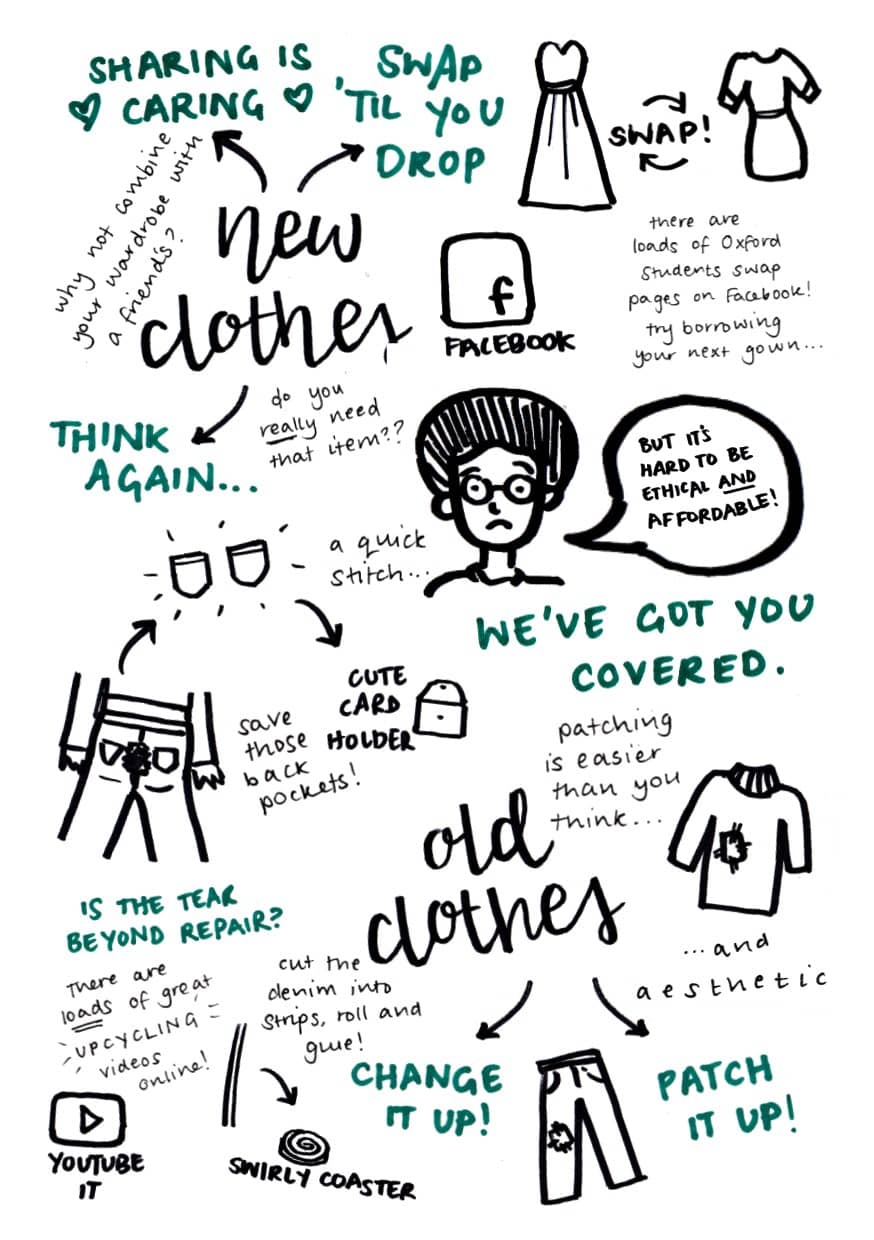 SHARING IS
CARING
why not combine
your wardrobe with
a friend's?
SWAP
'TIL YOU
DROP
SWAP!
new
clothes
there are
loads of Oxford
students swap
pages on Facebook!
try borrowing
your next gown...
f
FACEBOOK
do you
really need
that item??
THINK
AGAIN...
BUT IT'S
HARD TO BE
ETHICAL AND
AFFORDABLE!
WE'VE GOT YOU
COVERED.
a quick
stitch...
CUTE
CARD
HOLDER
save
those
back
pockets!
patching
is easier
than you
think...
old
clothes
...and
aesthetic
IS THE TEAR
BEYOND REPAIR?
There are
loads of great
UPCYCLING
videos
online!
YOUTUBE
IT
cut the
denim into
strips, roll and
glue!
SWIRLY COASTER
CHANGE
IT UP!
PATCH
IT UP!